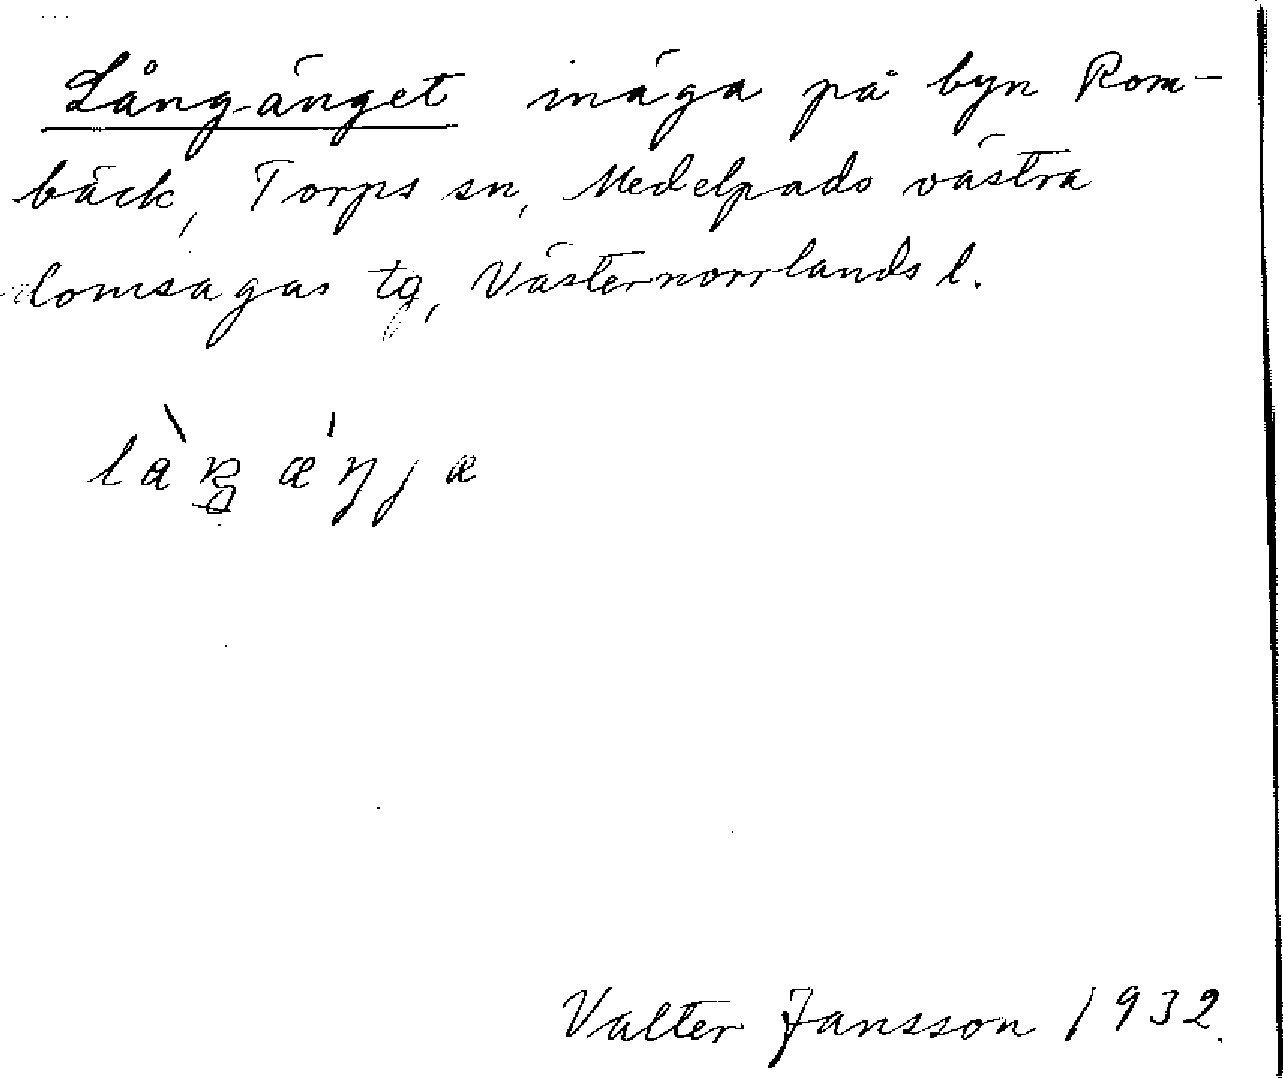 Långänget inäga på byn Rom-
bäck, Torps sn, Medelpads västra
domsagas tg, Västernorrlands l.
Valter Jansson 1932.